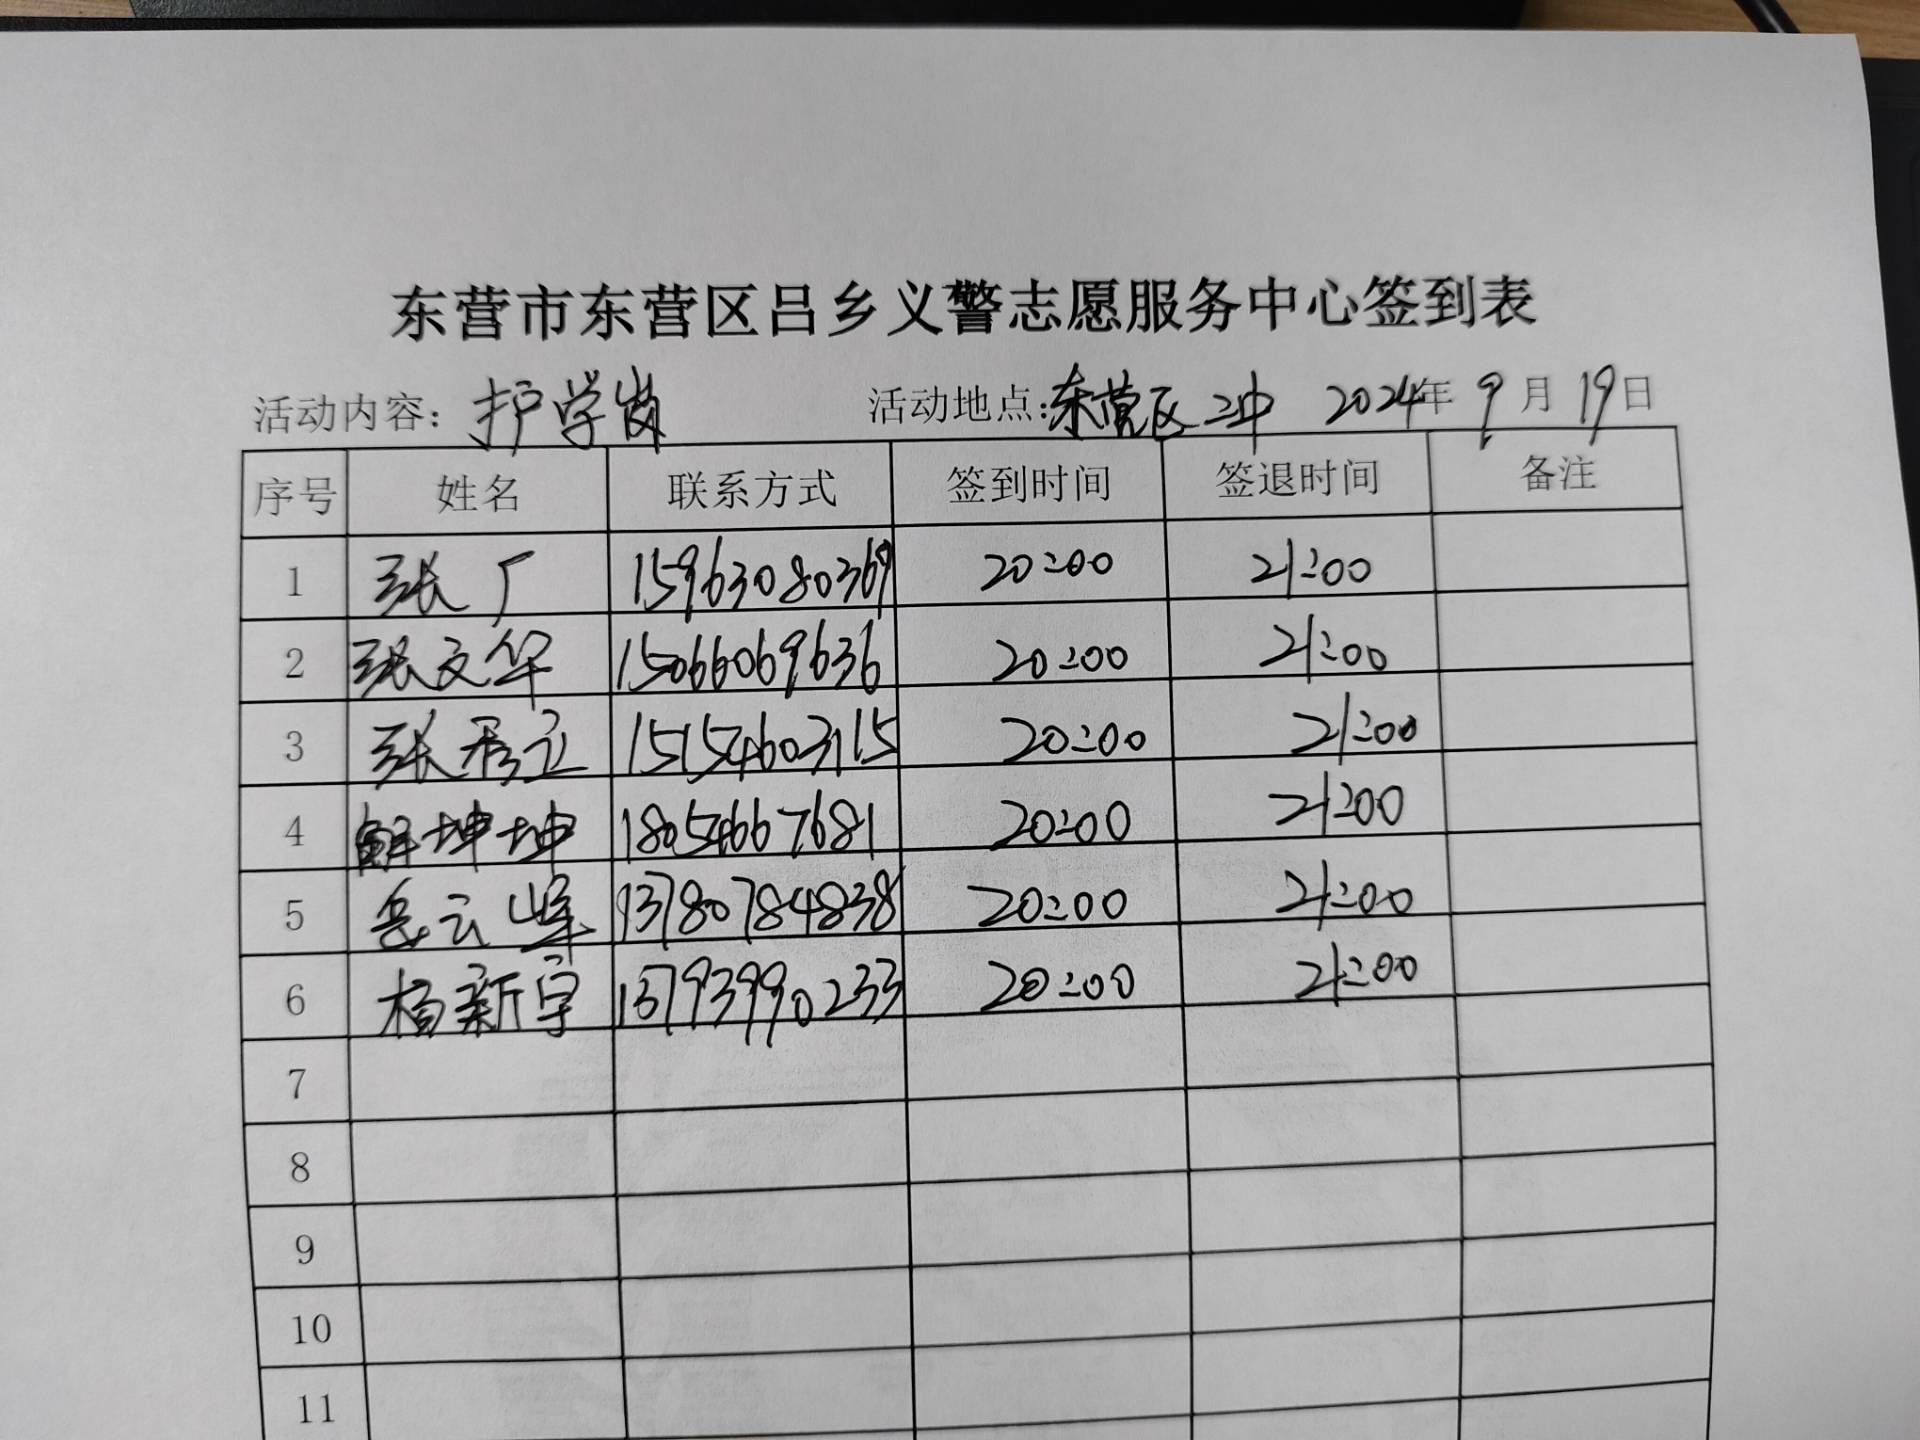 东营市东营区吕乡义警志愿服务中心签到表
活动内容：护学岗 活动地点：东营区二中 2024年9月19日
序号 姓名 联系方式 签到时间 签退时间 备注
1 张广 15963080369 20:00 21:00
2 张文华 15066069636 20:00 21:00
3 张 15154603115 20:00 21:00
4 解坤坤 18054667681 20:00 21:00
5 岳云峰 13780784838 20:00 21:00
6 杨新宇 13793990233 20:00 21:00
7
8
9
10
11